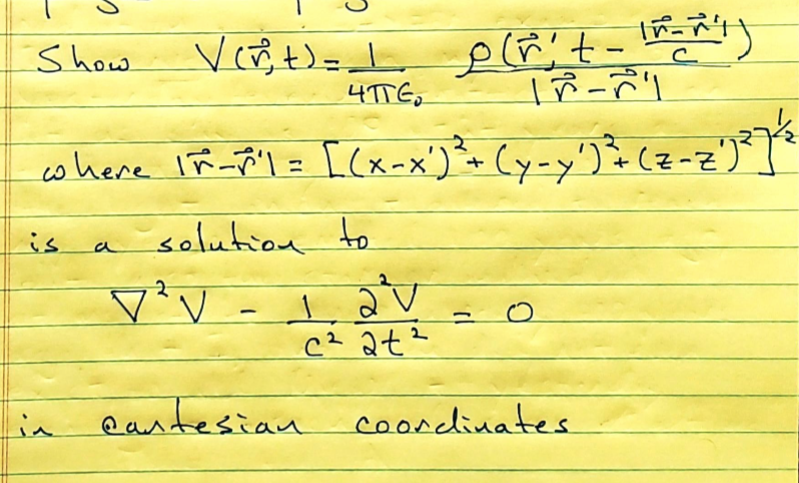 Show V(r⃗,t) = 1/4πϵ₀ ρ(r⃗', t - |r⃗-r⃗'|/c)/|r⃗-r⃗'|
where |r⃗-r⃗'| = [(x-x')²+(y-y')²+(z-z')²]^½
is a solution to
∇²V - 1/c² ∂²V/∂t² = 0
in cartesian coordinates